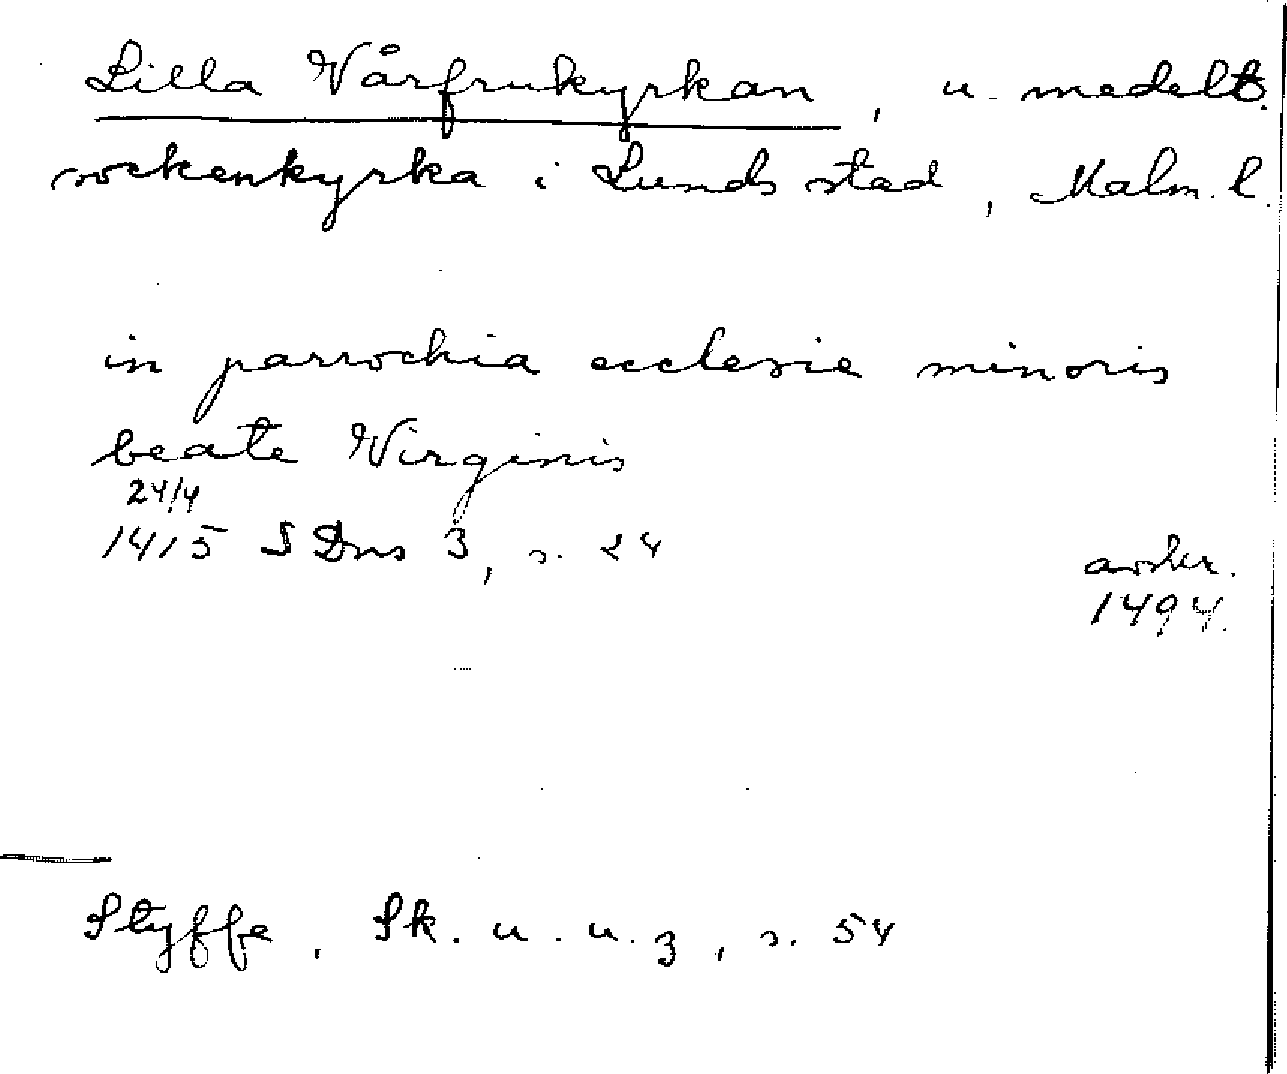 Lilla Vårfrukyrkan, u. medelt.
sockenkyrka i Lunds stad, Malm. l.
in parrochia ecclesie minoris
beate Virginis
24/4
1415 SDns 3, s. 24
avskr.
1494.
Styffe, Sk. u. u. 3, s. 54